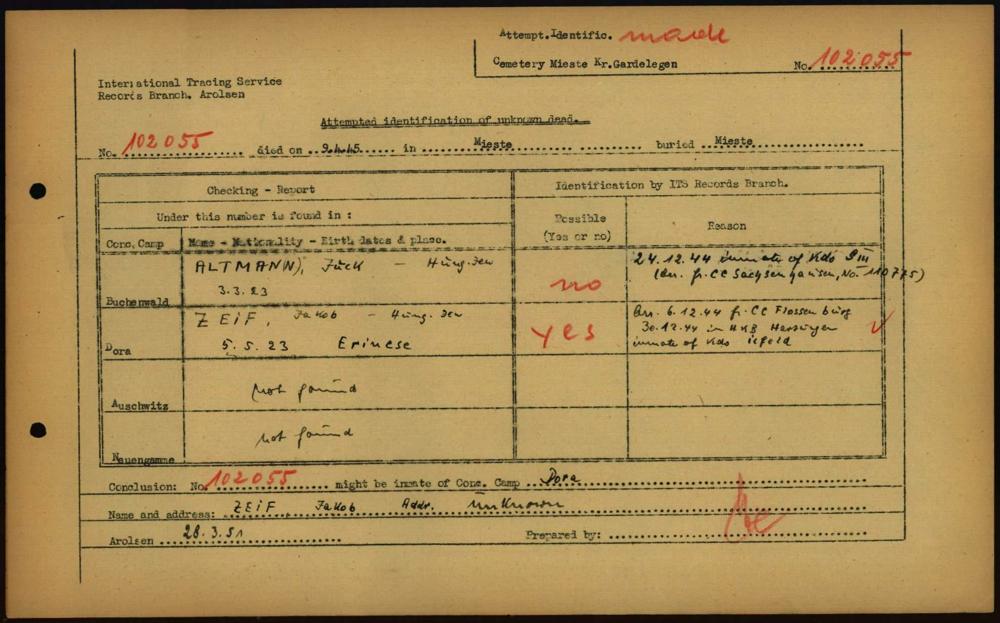 Attempt. Identific. made
Cemetery Mieste Kr. Gardelegen No. 102055
International Tracing Service
Records Branch. Arolsen
Attempted identification of unknown dead.
No. 102055 died on 9.4.45 in Mieste buried Mieste
Checking - Report
Identification by ITS Records Branch.
Under this number is found in :
Possible
(Yes or no)
Reason
Conc. Camp
Name - Nationality - Birth dates & place.
ALTMANN, Jack - Hung. Jew
3.3.23
Buchenwald
no
24.12.44 inmate of Kdo
(arr. fr. CC Sachsenhausen, No. 110775)
ZEIF, Jakob - Hung. Jew
5.5.23 Erinese
Dora
yes
arr. 6.12.44 fr. CC Flossenburg
30.12.44 in HKB Harzungen
inmate of Kdo Ilfeld
Auschwitz
not found
Neuengamme
not found
Conclusion: No. 102055 might be inmate of Conc. Camp Dora
Name and address: ZEIF, Jakob Addr. unknown
Arolsen 28.3.51 Prepared by: